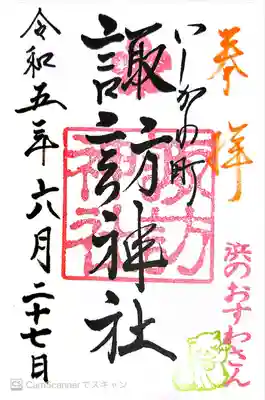 奉拝
浜のおすわさん
諏訪神社
令和五年六月二十七日
CS CamScannerでスキャン